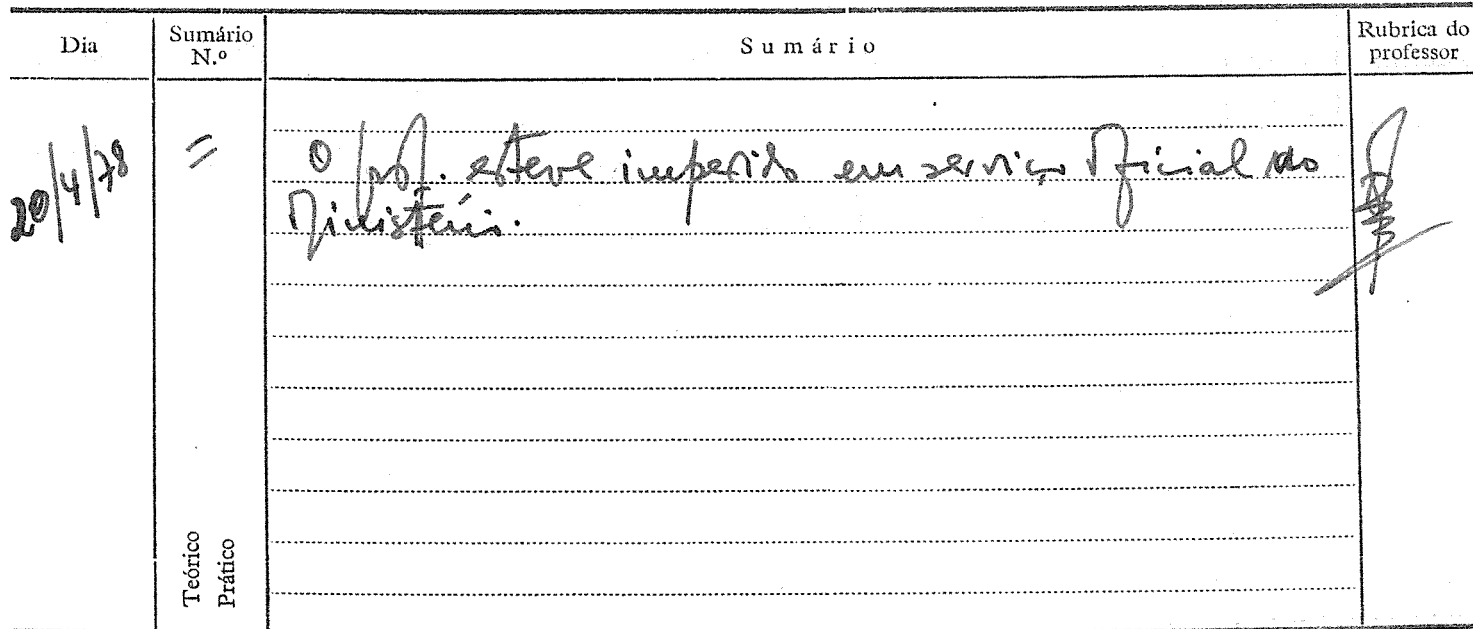 Dia
Sumário
N.º
Sumário
Rubrica do
professor
20/4/78
=
O prof. esteve impedido em serviço oficial do
Ministério.
Teórico
Prático